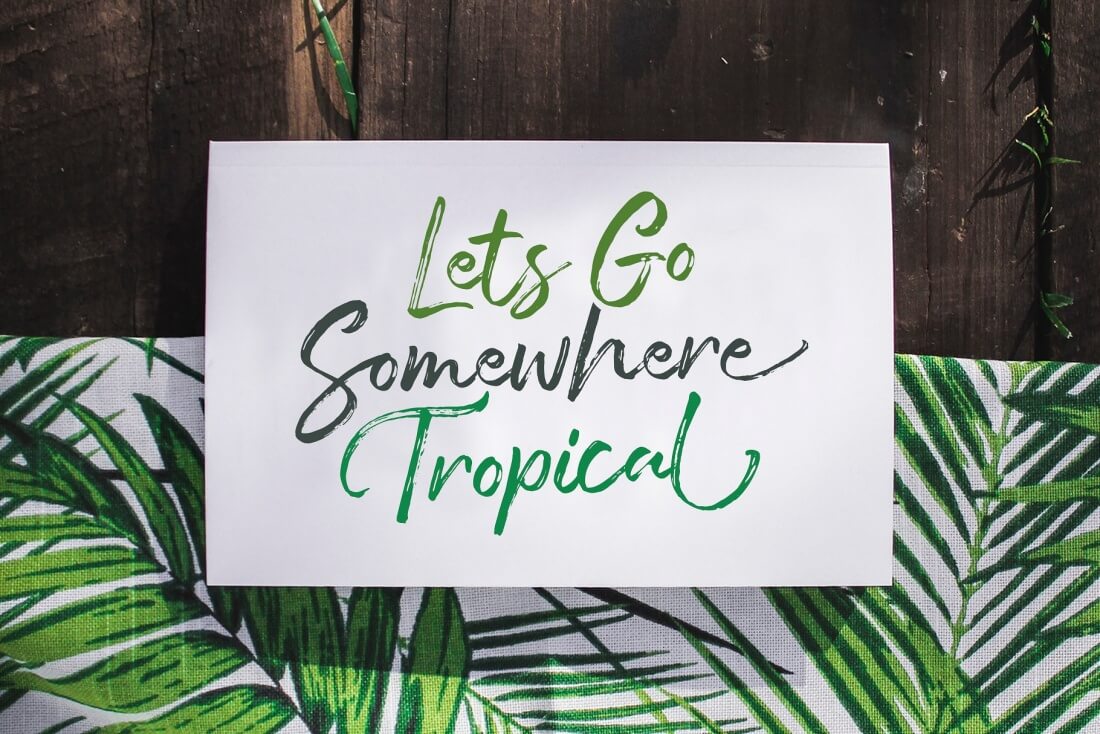 Lets Go
Somewhere
Tropical